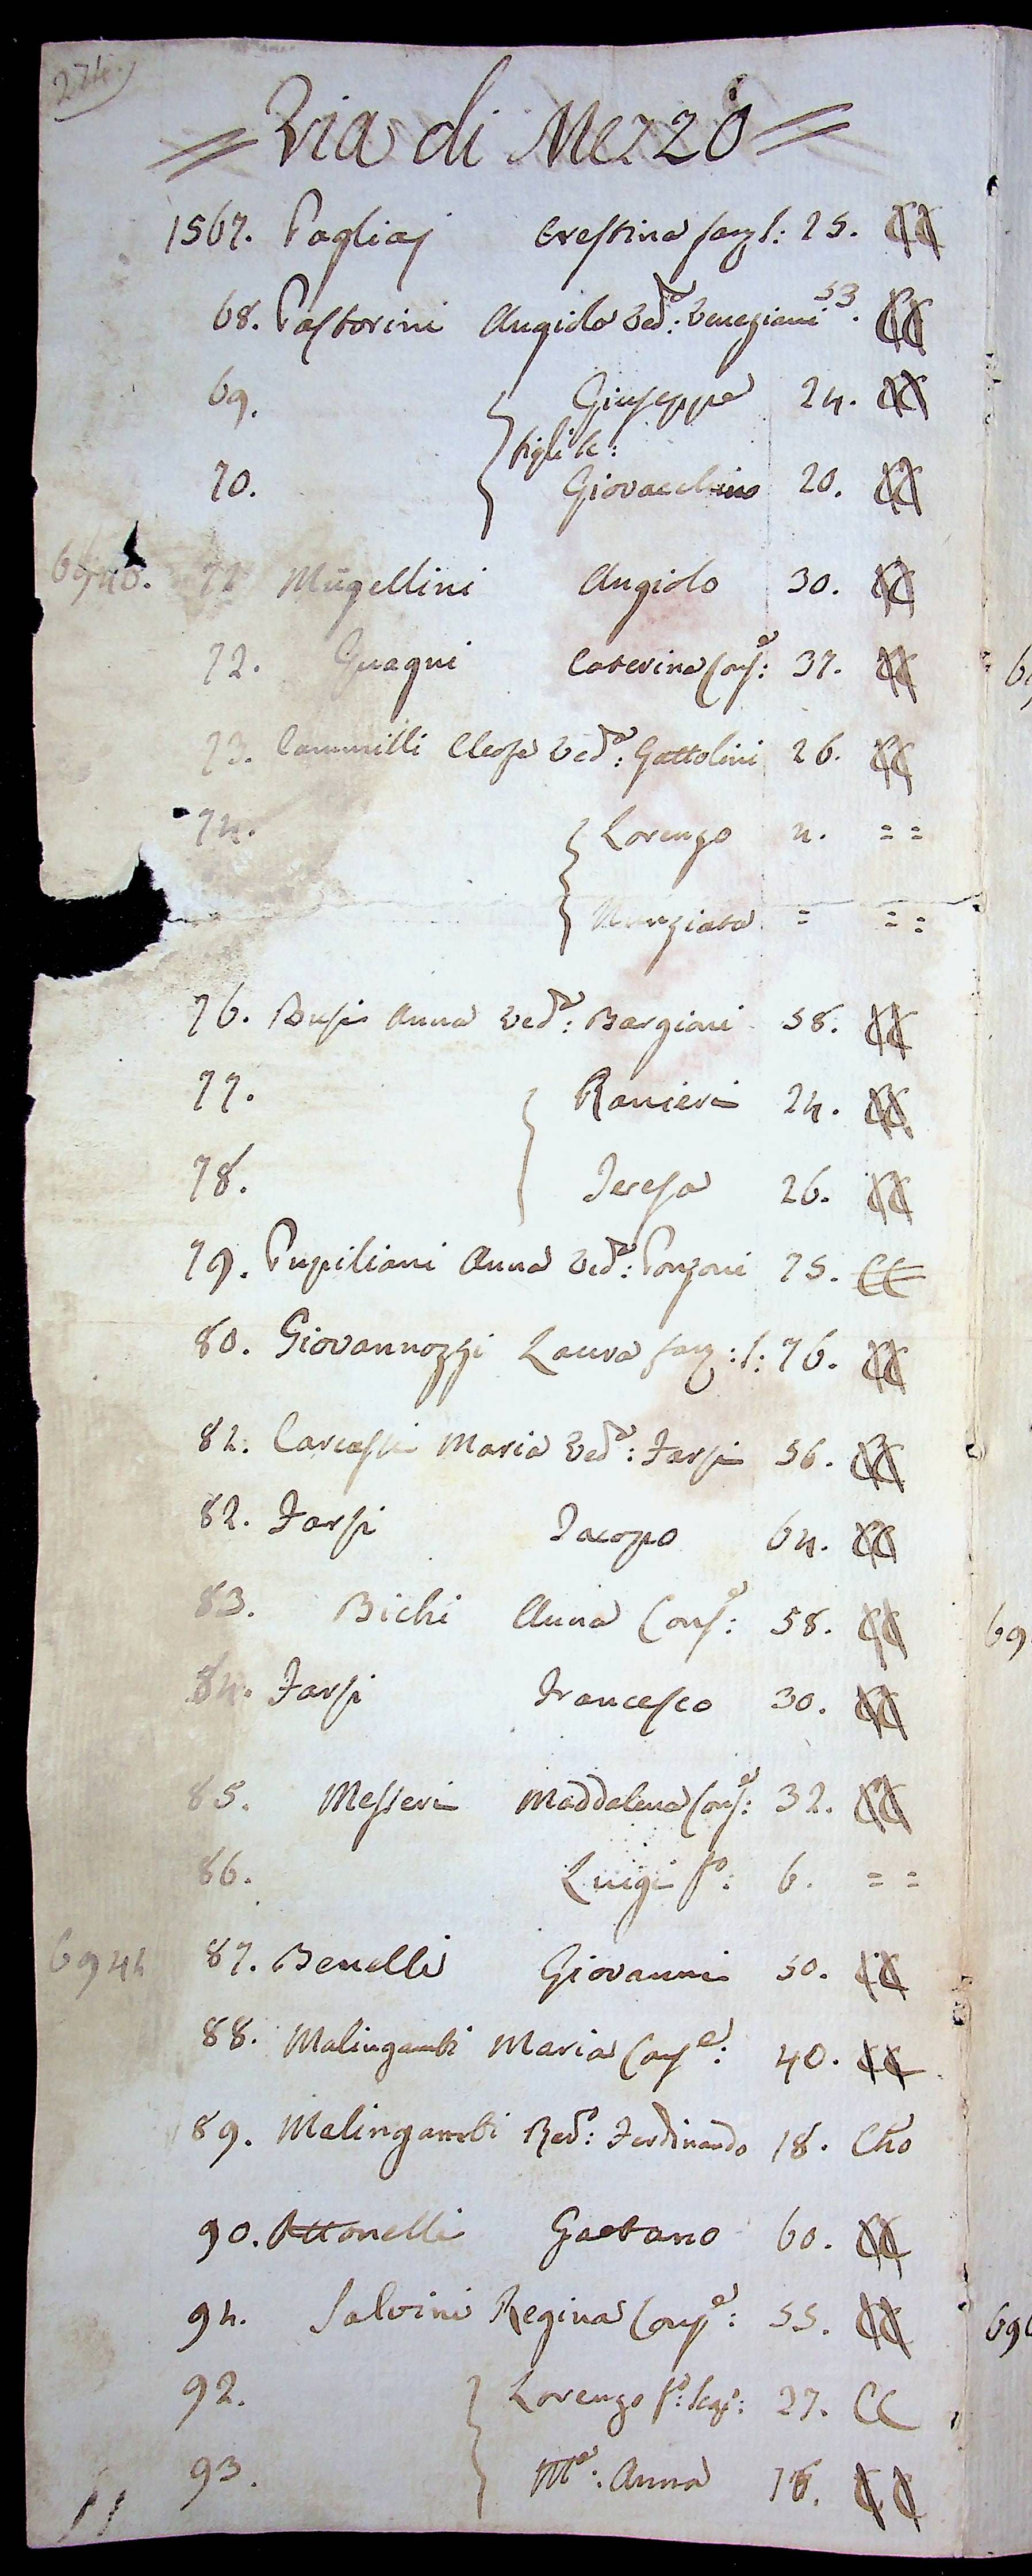 224.
= Via di Mezzo =
1567. Pagliaj Crestina fan: l: 25. CC
68. Pastorini Angiola Ved.a: Veneziani 53. CC
69. Giuseppe 24. CC
figli le:
70. Giovacchino 20. CC
6940. 71 Mugellini Angiolo 30. CC
72. Guagni Caterina Cons.e: 37. CC
73. Cammilli Cleofe Ved.a: Gattolini 26. CC
74. Lorenzo 4. = =
Nunziata = = =
76. Busi Anna Ved.a: Bargioni 58. CC
77. Ranieri 24. CC
78. Teresa 26. CC
79. Pupiliani Anna Ved.a: Ponzoni 75. CC
80. Giovannozzi Laura fan: l: 76. CC
81. Carcassi Maria Ved.a: Tarsi 56. CC
82. Tarsi Jacopo 64. CC
83. Bichi Anna Cons.e: 58. CC
84. Tarsi Francesco 30. CC
85. Messeri Maddalena Cons.e: 32. CC
86. Luigi f.o: 6. = =
6941 87. Benelli Giovanni 50. CC
88. Malingambi Maria Con.e: 40. CC
89. Malingambi Red.o: Ferdinando 18. Cho
90. Ottonelli Gaetano 60. CC
91. Salvini Regina Con.e: 55. CC
92. Lorenzo f.o: 27. CC
93. M.a: Anna 16. CC